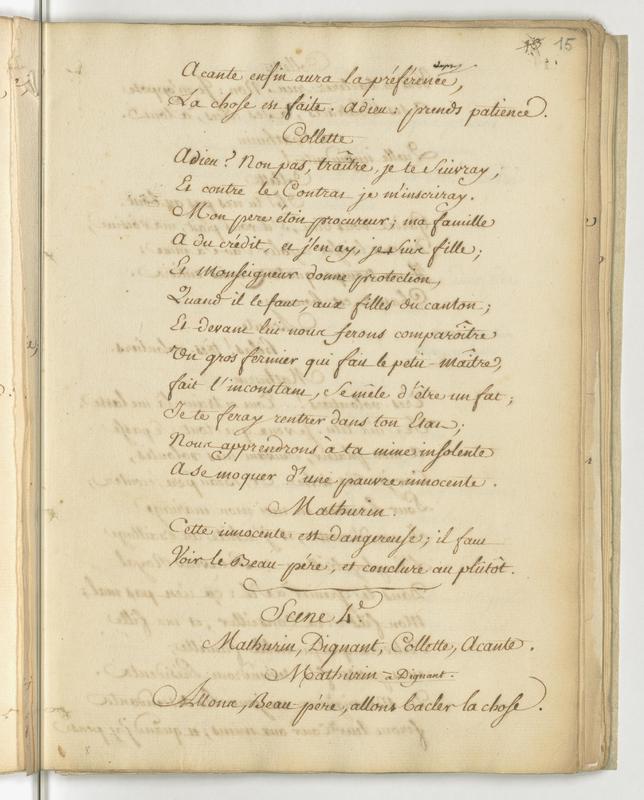 15
Acante enfin aura la préférence,
La chose est faite. adieu: prends patience.
Collette
Adieu? Non pas, traître, je te suivray,
Et contre le Contrat je m'inscriray.
Mon pere étoit procureur; ma famille
A du crédit et j'en ay, je suis fille;
Et Monseigneur donne protection,
Quand il le faut, aux filles du canton;
Et devant lui nous ferons comparoître
Un gros fermier qui fait le petit-maître,
fait l'inconstant, se mêle d'être un fat;
Je te feray rentrer dans ton Etat;
Nous apprendrons à ta mine insolente
A se moquer d'une pauvre innocente.
Mathurin.
Cette innocente est dangereuse; il faut
Voir le Beau-pére, et conclure au plûtôt.
Scene 4.e
Mathurin, Dignant, Collette, Acante.
Mathurin à Dignant.
Allons, Beau pére, allons bacler la chose.